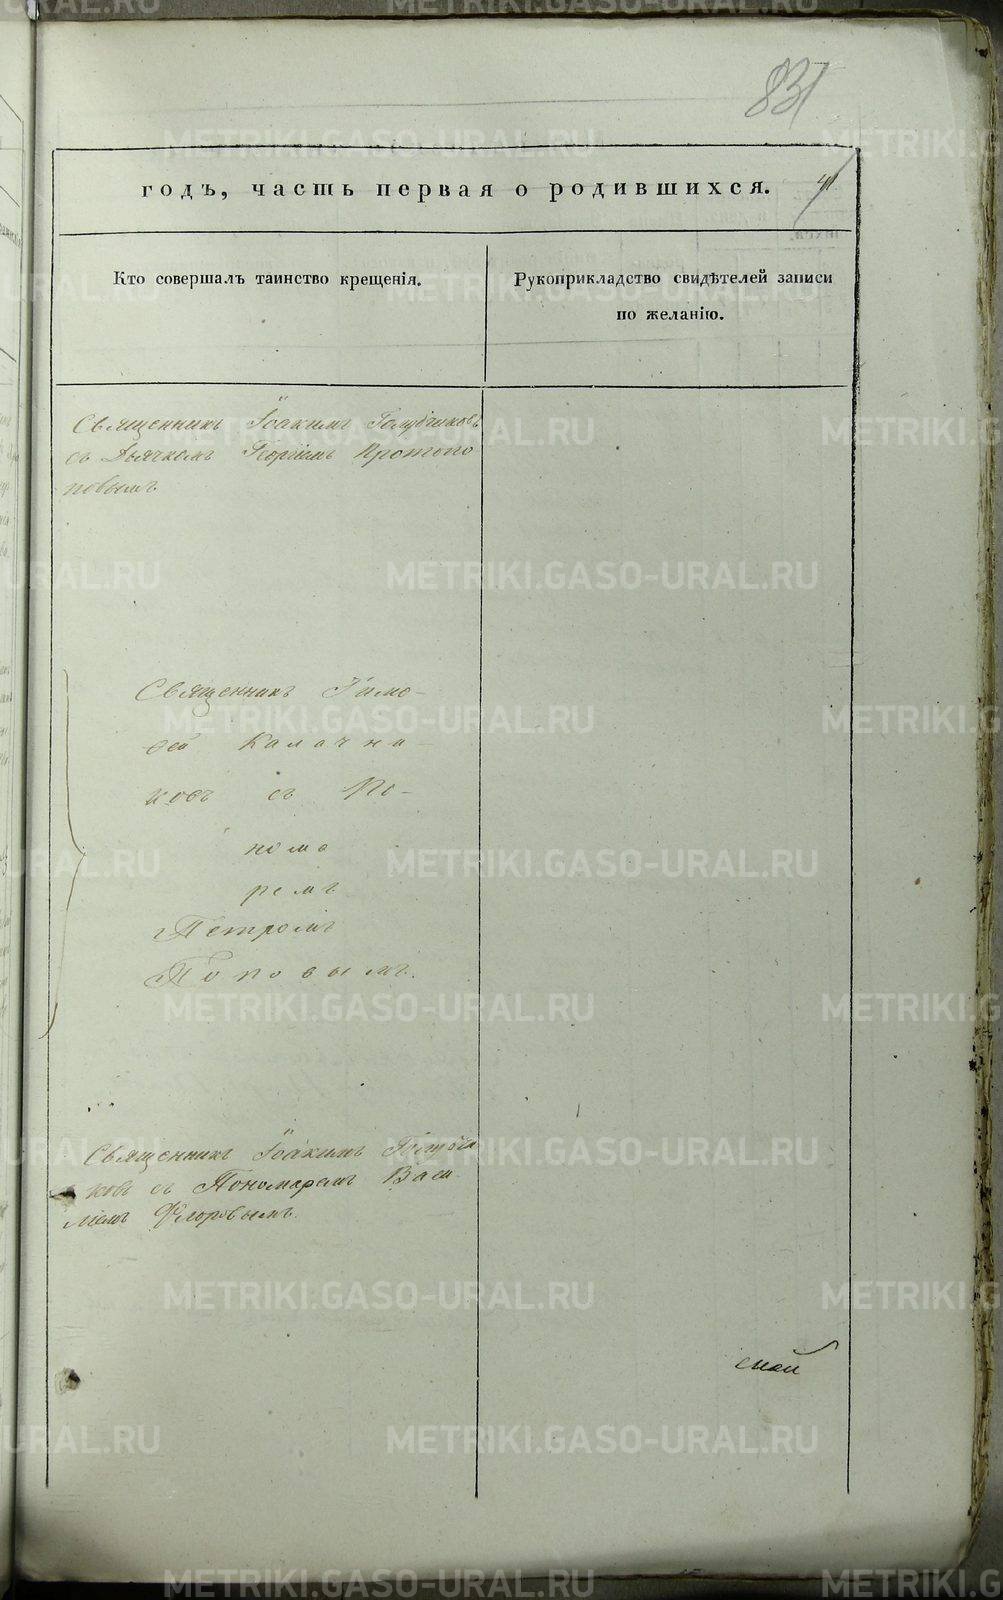 831
41
годъ, часть первая о родившихся.
Кто совершалъ таинство крещенія.
Рукоприкладство свидѣтелей записи
по желанію.
Священникъ Іоакимъ Голубчиковъ
съ Дьячкомъ Георгіемъ Протопо
повымъ
Священникъ Тимо-
ѳей Калачни-
ковъ съ По-
нома
ремъ
Петромъ
Поповымъ.
Священникъ Іоакимъ Голубчи
ковъ съ Пономаремъ Васи
ліемъ Флоровымъ
METRIKI.GASO-URAL.RU